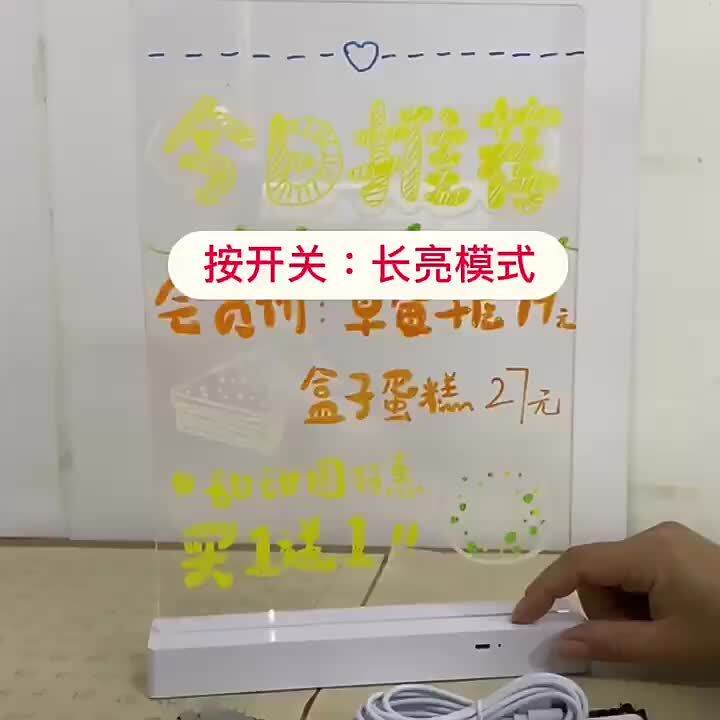 今日推荐
按开关：长亮模式
会员价：草莓千层19元
盒子蛋糕 27元
甜甜圈特惠
买1送1!!